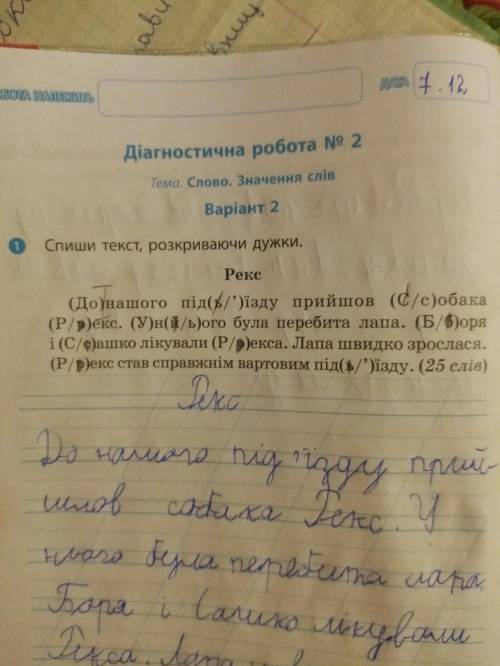 БОТА НАЛЕЖИТЬ
ДАТА 7.12
Діагностична робота № 2
Тема. Слово. Значення слів
Варіант 2
1 Спиши текст, розкриваючи дужки.
Рекс
(До)нашого під(ь/’)їзду прийшов (С/с)обака
(Р/р)екс. (У)н(й/ь)ого була перебита лапа. (Б/б)оря
і (С/с)ашко лікували (Р/р)екса. Лапа швидко зрослася.
(Р/р)екс став справжнім вартовим під(ь/’)їзду. (25 слів)
Рекс
До нашого під'їзду прий-
шов собака Рекс. У
нього була перебита лапа.
Боря і Сашко лікували
Рекса. Лапа